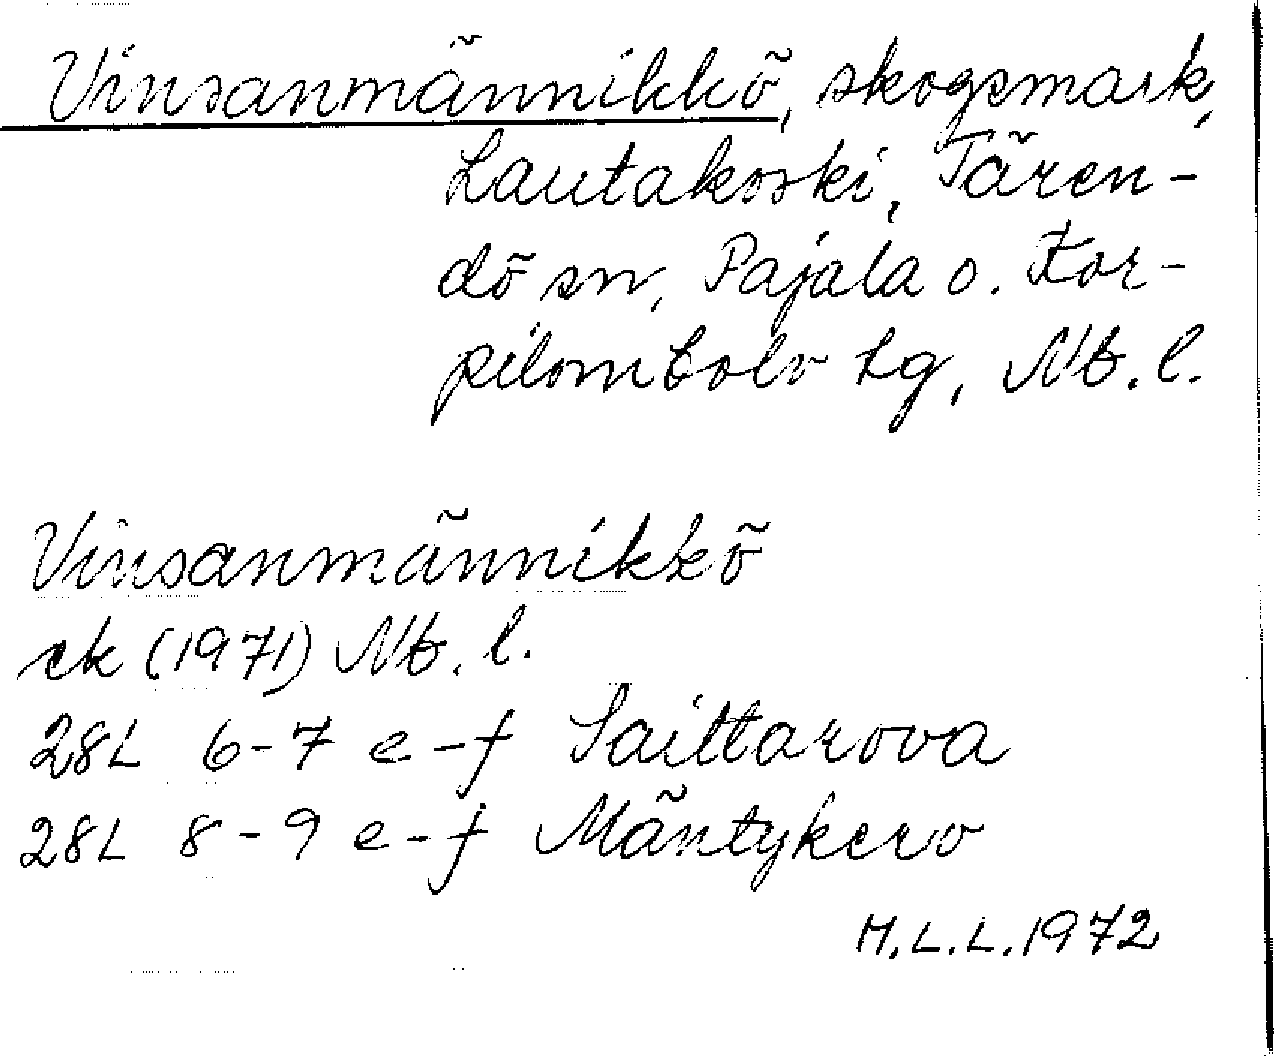 Vinsanmännikkö, skogsmark,
Lautakoski, Tären-
dö sn, Pajala o. Kor-
pilombolo tg, Nb. l.
Vinsanmännikkö
ek (1971) Nb. l.
28L 6-7 e-f Saittarova
28L 8-9 e-f Mäntykero
M.L.L. 1972